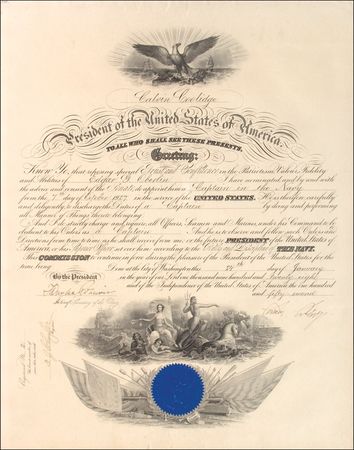 Calvin Coolidge
President of the United States of America.
TO ALL WHO SHALL SEE THESE PRESENTS,
Greeting:
Know Ye, that reposing special Trust and Confidence in the Patriotism, Valor, Fidelity
and Abilities of Edgar G. I have nominated, and by and with
the advice and consent of the Senate, do appoint him a Captain in the Navy
from the day of October 1927 in the service of the UNITED STATES. He is therefore carefully
and diligently to discharge the Duties of a Captain by doing and performing
all Manner of Things thereto belonging.
And I do strictly charge and require all Officers, Seamen and Marines, under his Command to be
obedient to his Orders as Captain And he is to observe and follow such Orders and
Directions from time to time as he shall receive from me, or the future PRESIDENT of the United States of
America, or his Superior Officer set over him, according to the Rules and Discipline of THE NAVY.
This COMMISSION to continue in force during the pleasure of the President of the United States for the
time being.
Done at the City of Washington this day of January
in the year of our Lord one thousand nine hundred and twenty eight
and of the Independence of the United States of America the one hundred
and fifty second
By the President
Secretary of the Navy